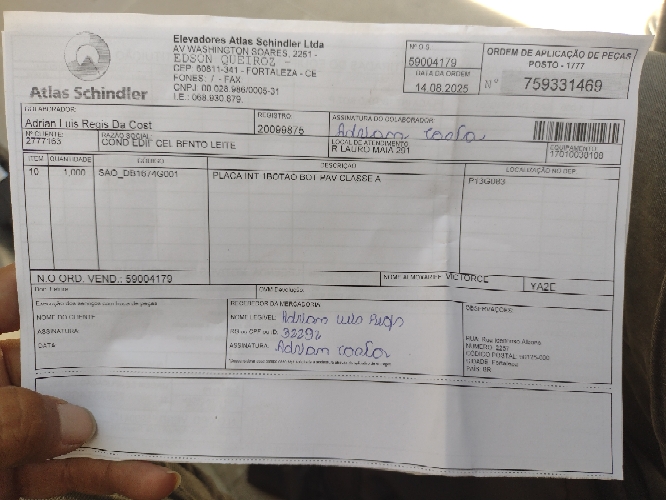 Elevadores Atlas Schindler Ltda
AV WASHINGTON SOARES, 2251 -
EDSON QUEIROZ -
CEP: 60811-341 - FORTALEZA - CE
FONES: / - FAX
CNPJ: 00.028.986/0005-31
I.E.: 068.930.879.
Atlas Schindler
Nº O.S.
59004179
DATA DA ORDEM
14.08.2025
ORDEM DE APLICAÇÃO DE PEÇAS
POSTO - 1777
Nº 759331469
COLABORADOR:
Adrian Luis Regis Da Cost
REGISTRO
20099875
ASSINATURA DO COLABORADOR
Adrian Costa
Nº CLIENTE:
2777155
RAZÃO SOCIAL:
COND EDIF CEL BENTO LEITE
LOCAL DE ATENDIMENTO
R LAURO MAIA 291
EQUIPAMENTO
ITEM QUANTIDADE CÓDIGO DESCRIÇÃO LOCALIZAÇÃO NO DEP.
10 1,000 SAO_DB1674G001 PLACA INT 1BOTAO BOT PAV CLASSE A P13G083
N.O ORD. VEND.: 59004179
NOME ALMOXARIFE VICTORCE
YA2E
NOME DO CLIENTE
ASSINATURA
DATA
RECEBEDOR DA MERCADORIA
NOME LEGÍVEL: Adrian Luis Regis
RG ou CPF ou ID:
ASSINATURA: Adrian Costa
OBSERVAÇÕES:
NÚMERO: 2257
CIDADE: Fortaleza
PAÍS: BR